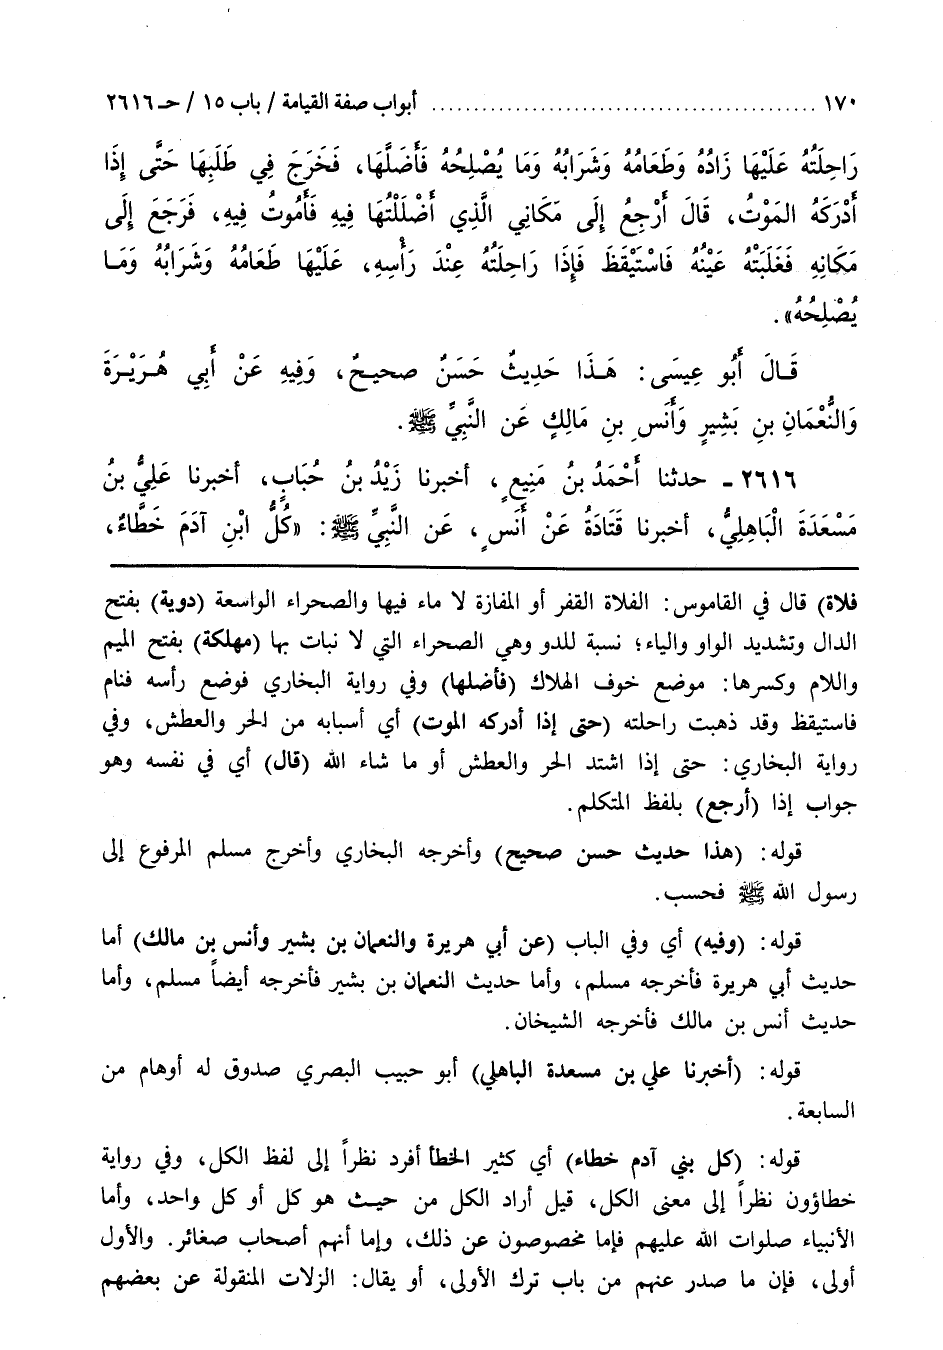 ١٧٠ ........................................ أبواب صفة القيامة / باب ١٥ / حـ ٢٦١٦
رَاحِلَتُهُ عَلَيْهَا زَادُهُ وَطَعَامُهُ وَشَرَابُهُ وَمَا يُصْلِحُهُ فَأَضَلَّهَا، فَخَرَجَ فِي طَلَبِهَا حَتَّى إِذَا
أَدْرَكَهُ المَوْتُ، قَالَ أَرْجِعُ إِلَى مَكَانِي الَّذِي أَضْلَلْتُهَا فِيهِ فَأَمُوتُ فِيهِ، فَرَجَعَ إِلَى
مَكَانِهِ فَغَلَبَتْهُ عَيْنُهُ فَاسْتَيْقَظَ فَإِذَا رَاحِلَتُهُ عِنْدَ رَأْسِهِ، عَلَيْهَا طَعَامُهُ وَشَرَابُهُ وَمَا
يُصْلِحُهُ».
قَالَ أَبُو عِيسَى: هَذَا حَدِيثٌ حَسَنٌ صحيحٌ، وَفِيهِ عَنْ أَبِي هُرَيْرَةَ
وَالنُّعْمَانِ بنِ بَشِيرٍ وَأَنَسِ بنِ مَالِكٍ عَن النَّبِيِّ ﷺ.
٢٦١٦ - حدثنا أَحْمَدُ بنُ مَنِيعٍ، أخبرنا زَيْدُ بنُ حُبَابٍ، أخبرنا عَلِيُّ بنُ
مَسْعَدَةَ الْبَاهِلِيُّ، أخبرنا قَتَادَةُ عَنْ أَنَسٍ، عَن النَّبِيِّ ﷺ: «كُلُّ ابْنِ آدَمَ خَطَّاءٌ،
فلاة) قال في القاموس: الفلاة القفر أو المفازة لا ماء فيها والصحراء الواسعة (دوية) بفتح
الدال وتشديد الواو والياء؛ نسبة للدو وهي الصحراء التي لا نبات بها (مهلكة) بفتح الميم
واللام وكسرها: موضع خوف الهلاك (فأضلها) وفي رواية البخاري فوضع رأسه فنام
فاستيقظ وقد ذهبت راحلته (حتى إذا أدركه الموت) أي أسبابه من الحر والعطش، وفي
رواية البخاري: حتى إذا اشتد الحر والعطش أو ما شاء الله (قال) أي في نفسه وهو
جواب إذا (أرجع) بلفظ المتكلم.
قوله: (هذا حديث حسن صحيح) وأخرجه البخاري وأخرج مسلم المرفوع إلى
رسول الله ﷺ فحسب.
قوله: (وفيه) أي وفي الباب (عن أبي هريرة والنعمان بن بشير وأنس بن مالك) أما
حديث أبي هريرة فأخرجه مسلم، وأما حديث النعمان بن بشير فأخرجه أيضاً مسلم، وأما
حديث أنس بن مالك فأخرجه الشيخان.
قوله: (أخبرنا علي بن مسعدة الباهلي) أبو حبيب البصري صدوق له أوهام من
السابعة.
قوله: (كل بني آدم خطاء) أي كثير الخطأ أفرد نظراً إلى لفظ الكل، وفي رواية
خطاؤون نظراً إلى معنى الكل، قيل أراد الكل من حيث هو كل أو كل واحد، وأما
الأنبياء صلوات الله عليهم فإما مخصوصون عن ذلك، وإما أنهم أصحاب صغائر. والأول
أولى، فإن ما صدر عنهم من باب ترك الأولى، أو يقال: الزلات المنقولة عن بعضهم